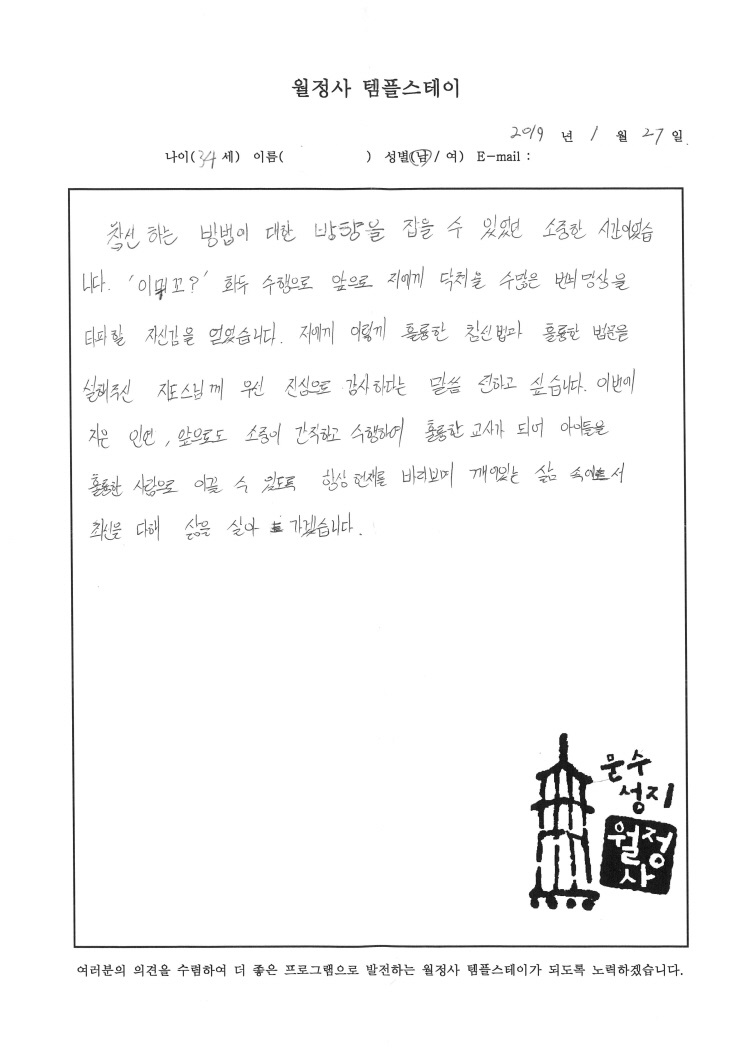 월정사 템플스테이
2019 년 1 월 27 일
나이(34 세) 이름( ) 성별(남/ 여) E-mail :
참선 하는 방법에 대한 방향을 잡을 수 있었던 소중한 시간이었습
니다. '이뭐꼬?' 화두 수행으로 앞으로 저에게 닥쳐올 수많은 번뇌망상을
타파할 자신감을 얻었습니다. 저에게 이렇게 훌륭한 참선법과 훌륭한 법문을
설해주신 지도스님께 우선 진심으로 감사하다는 말씀 전하고 싶습니다. 이번에
지은 인연, 앞으로도 소중히 간직하고 수행하여 훌륭한 교사가 되어 아이들을
훌륭한 사람으로 이끌 수 있도록 항상 현재를 바라보며 깨어있는 삶 속에서
최선을 다해 삶을 살아 가겠습니다.
문수
성지
월정
사
여러분의 의견을 수렴하여 더 좋은 프로그램으로 발전하는 월정사 템플스테이가 되도록 노력하겠습니다.